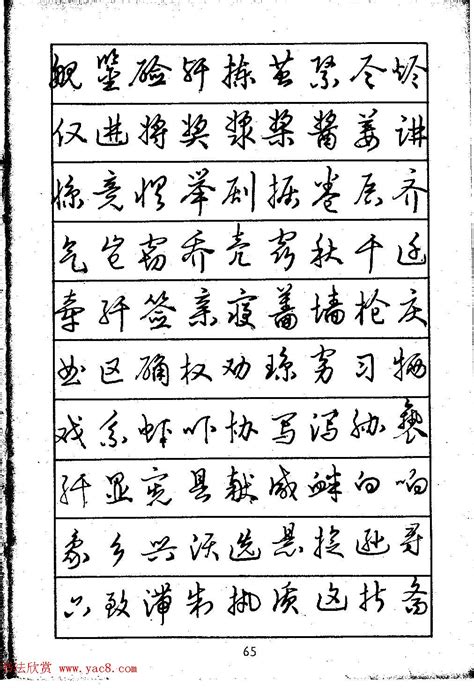 舰 鉴 硷 歼 拣 茧 紧 尽 烬
仅 进 将 奖 浆 桨 酱 姜 讲
惊 竞 惧 举 剧 据 卷 齐
气 岂 窃 乔 壳 窍 秋 千 迁
牵 纤 签 亲 寝 蔷 墙 枪 庆
曲 区 确 权 劝 琼 穷 习 牺
戏 系 虾 吓 协 写 泻 胁 亵
纤 显 宪 县 献 咸 衅 向 响
乡 兴 选 悬 逊 寻
只 致 滞 制 执 质 这 折 斋
65
书法欣赏 www.yac8.com